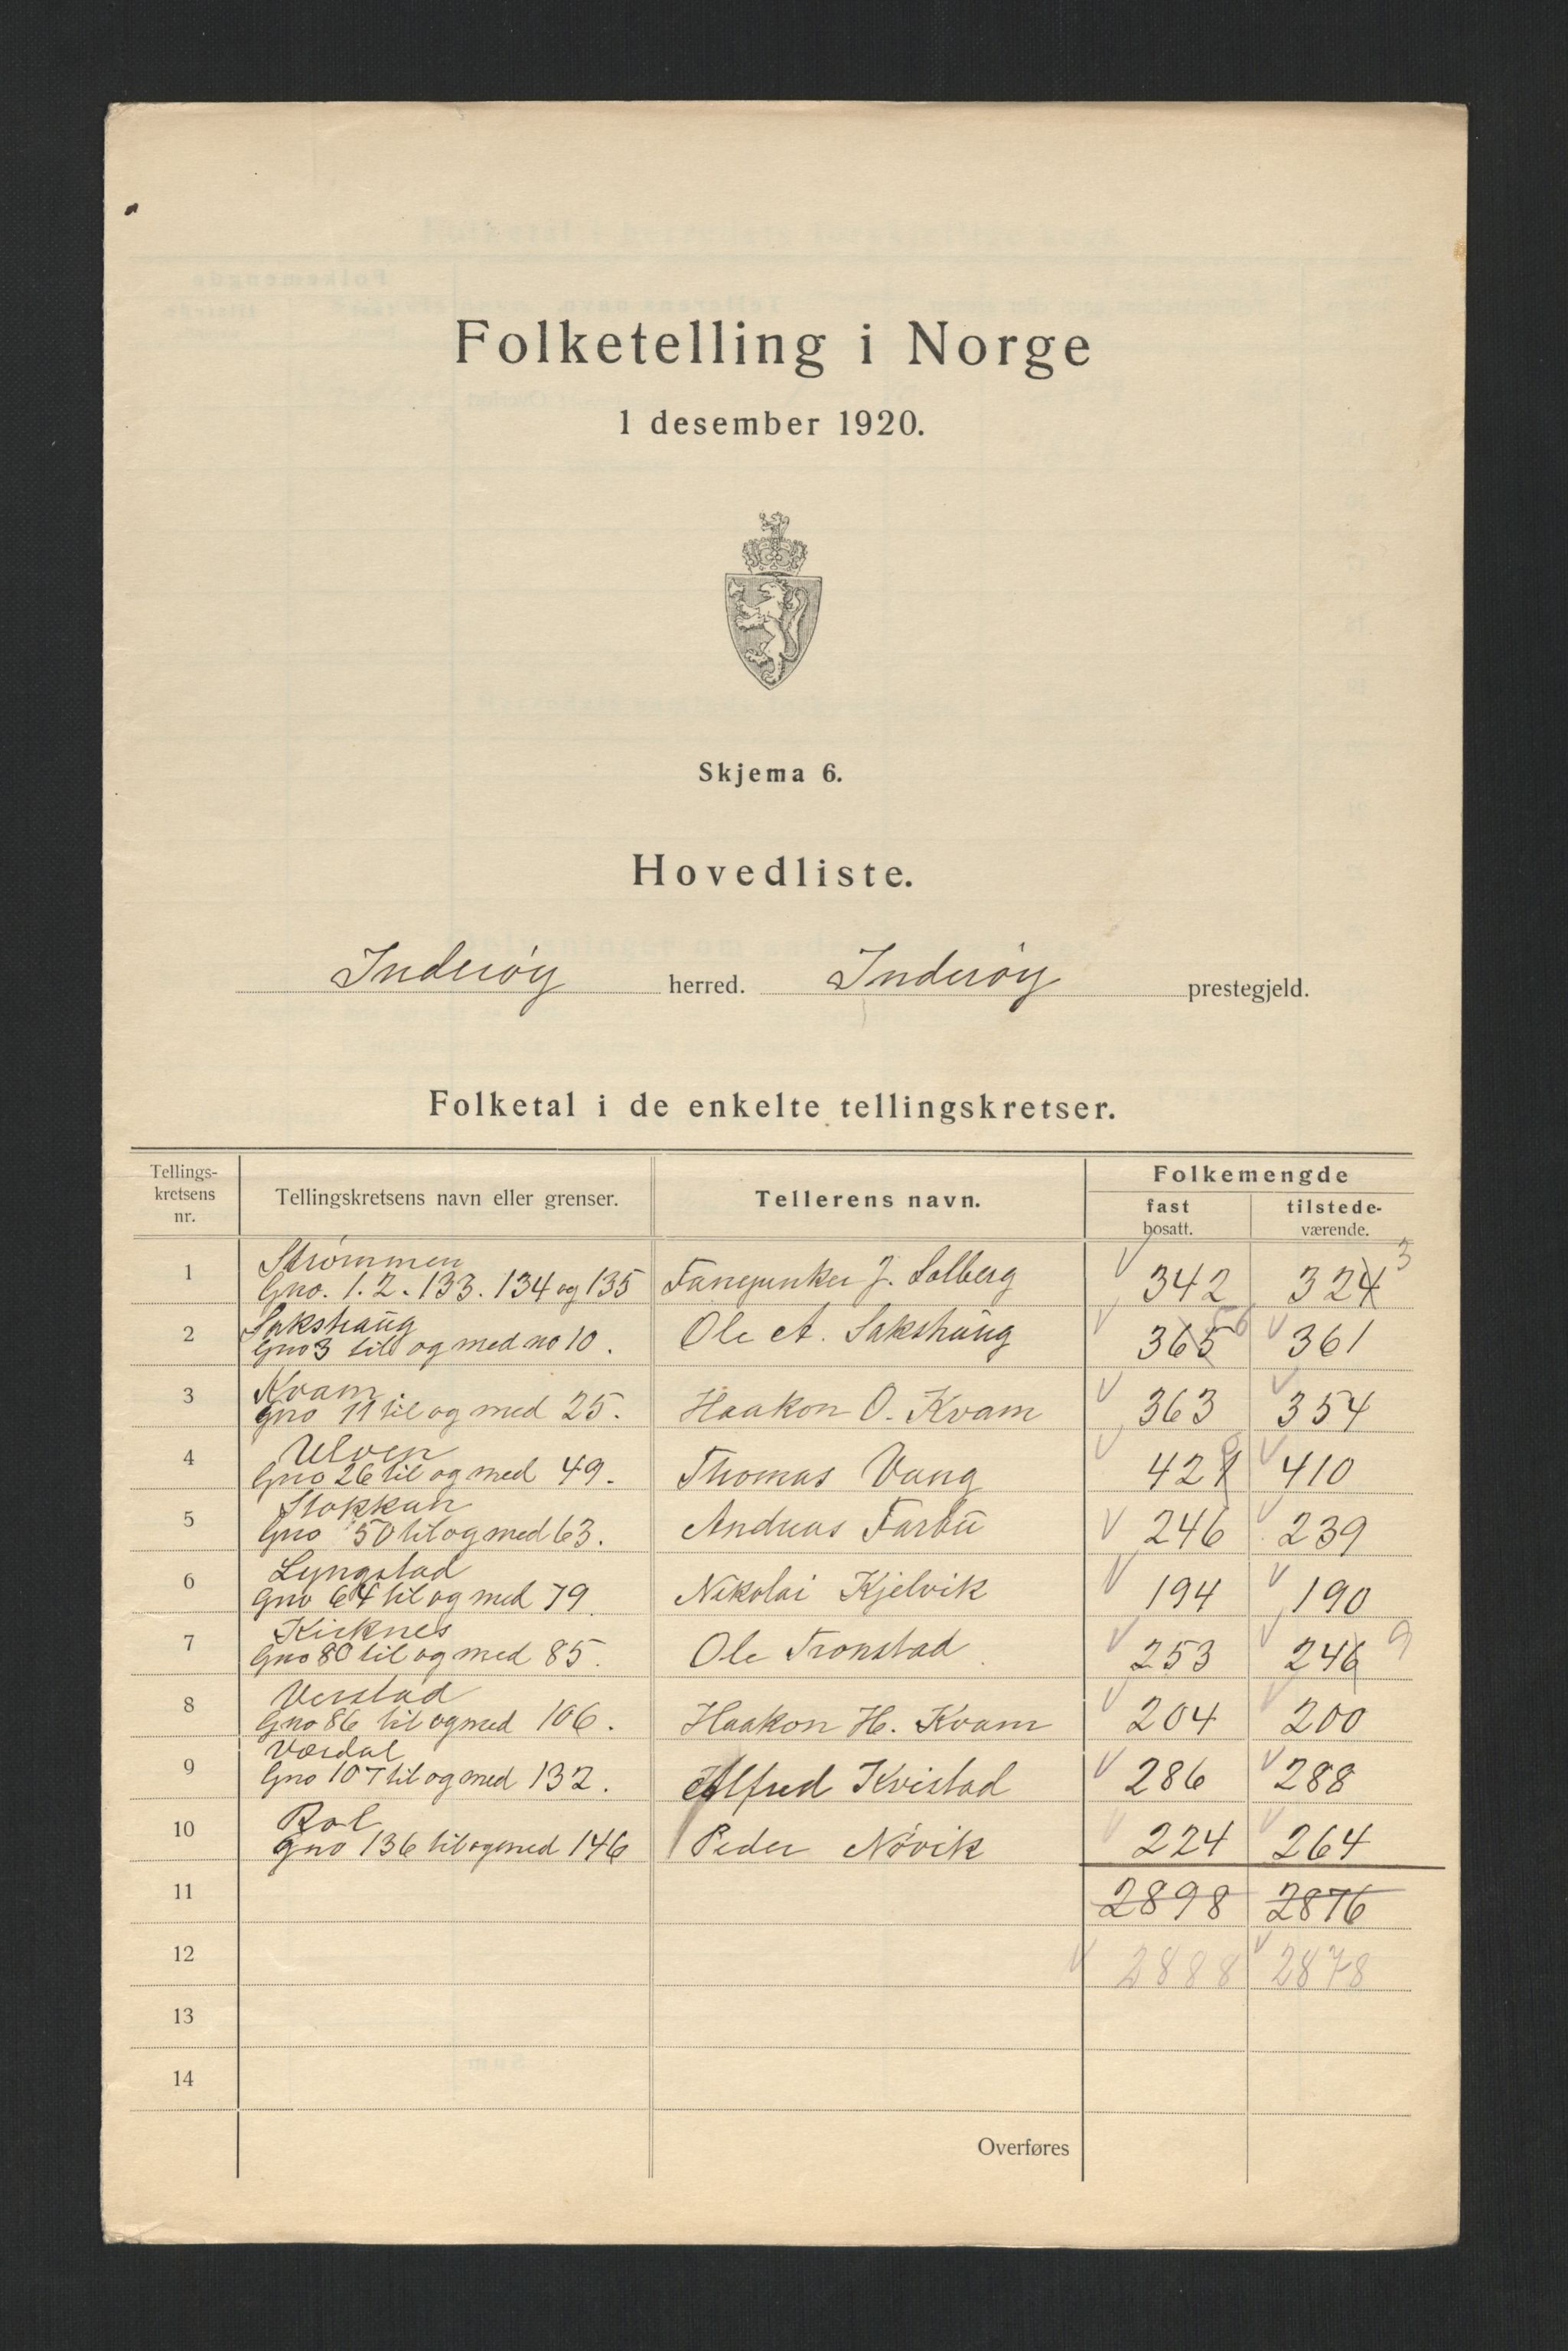 Folketelling i Norge
1 desember 1920.
Skjema 6.
Hovedliste.
Inderøy herred. Inderøy prestegjeld.
Folketal i de enkelte tellingskretser.
Tellings-
kretsens
nr.
Tellingskretsens navn eller grenser.
Tellerens navn.
Folkemengde
fast
bosatt.
tilstede-
værende.
1 Strømmen
Gno. 1. 2. 133. 134 og 135 Fanejunker J. Solberg 342 324 3
2 Sakshaug
Gno 3 til og med no 10. Ole A. Sakshaug 365 56 361
3 Kvam
Gno 11 til og med 25. Haakon O. Kvam 363 354
4 Ulven
Gno 26 til og med 49. Thomas Vang 421 410
5 Stokkan
Gno 50 til og med 63. Andreas Farbu 246 239
6 Lyngstad
Gno 64 til og med 79. Nikolai Kjelvik 194 190
7 Kirknes
Gno 80 til og med 85. Ole Tronstad. 253 246 9
8 Verstad
Gno 86 til og med 106. Haakon H. Kvam 204 200
9 Værdal
Gno 107 til og med 132. Alfred Kvistad 286 288
10 Rol
Gno 136 til og med 146 Peder Nøvik 224 264
11 2898 2876
12 2888 2878
13
14
Overføres